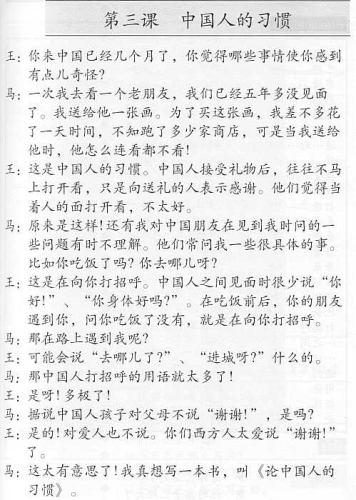 第三课 中国人的习惯
王：你来中国已经几个月了，你觉得哪些事情使你感到
有点儿奇怪？
马：一次我去看一个老朋友，我们已经五年多没见面
了。我送给他一张画。为了买这张画，我差不多花
了一天时间，不知跑了多少家商店，可是当我送给
他时，他怎么连看都不看！
王：这是中国人的习惯。中国人接受礼物后，往往不马
上打开看，只是向送礼的人表示感谢。他们觉得当
着人的面打开看，不太好。
马：原来是这样！还有我对中国朋友在见到我时问的一
些问题有时不理解。他们常问我一些很具体的事。
比如你吃饭了吗？你去哪儿呀？
王：这是在向你打招呼。中国人之间见面时很少说“你
好！”、“你身体好吗？”。在吃饭前后，你的朋友
遇到你，问你吃饭了没有，就是在向你打招呼。
马：那在路上遇到我呢？
王：可能会说“去哪儿了？”、“进城呀？”什么的。
马：那中国人打招呼的用语就太多了！
王：是呀！多极了！
马：据说中国人孩子对父母不说“谢谢！”，是吗？
王：是的！对爱人也不说。你们西方人太爱说“谢谢！”
了。
马：这太有意思了！我真想写一本书，叫《论中国人的
习惯》。